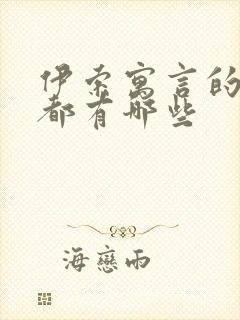 伊索寓言的
都有哪些
海戀雨